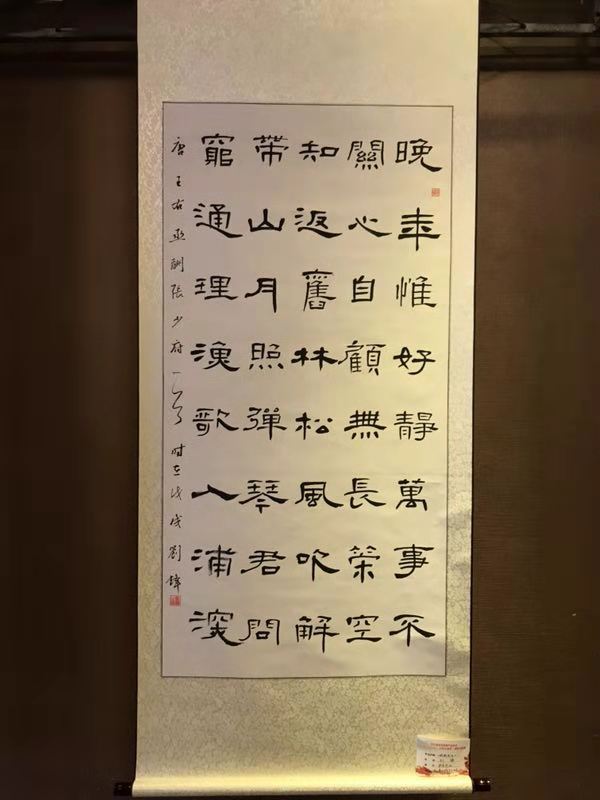 晚年惟好靜萬事不
關心自顧無長策空
知返舊林松風吹解
帶山月照彈琴君問
窮通理漁歌入浦深
唐王右丞酬張少府一首 時在戊戌劉